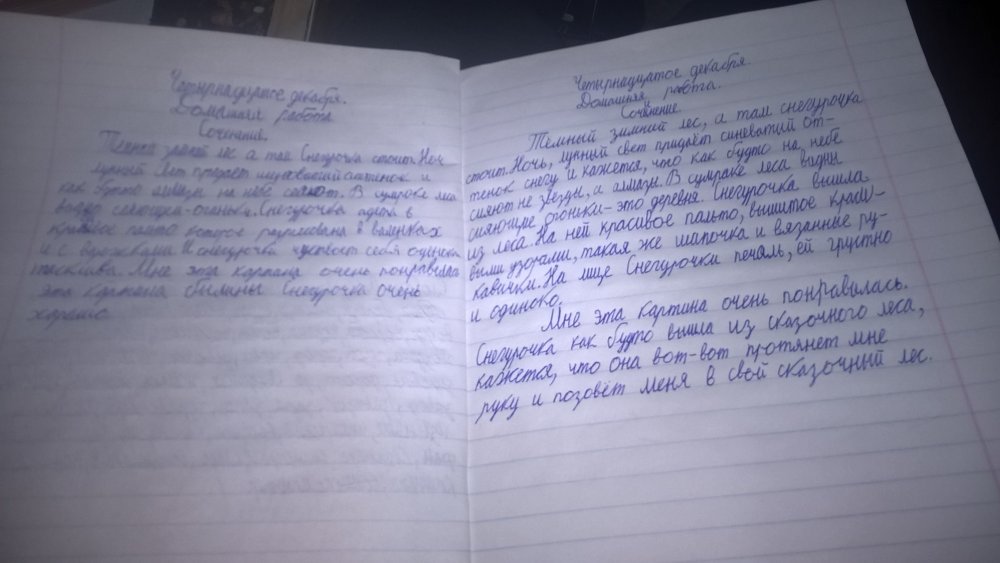 Четырнадцатое декабря.
Домашняя работа
Сочинение.
лес а там Снегурочка стоит. Ночь
лунный свет придаёт оттенок и
как будто на небе сияют. В сумраке
огоньки. Снегурочка одета в
красивое пальто которое разрисовано в валенках
и с варежками И снегурочка чувствует себя
Мне эта картина очень понравилась
эта картина Снегурочка очень
хорошо
Четырнадцатое декабря.
Домашняя работа.
Сочинение.
Тёмный зимний лес, а там снегурочка
стоит. Ночь, лунный свет придаёт синеватый от-
тенок снегу и кажется, что как будто на небе
сияют не звёзды, а алмазы. В сумраке леса видны
сияющие огоньки-это деревня. Снегурочка вышла
из леса. На ней красивое пальто, вышитое краси-
выми узорами, такая же шапочка и вязанные ру-
кавички. На лице Снегурочки печаль, ей грустно
и одиноко.
Мне эта картина очень понравилась.
Снегурочка как будто вышла из сказочного леса,
кажется, что она вот-вот протянет мне
руку и позовёт меня в свой сказочный лес.